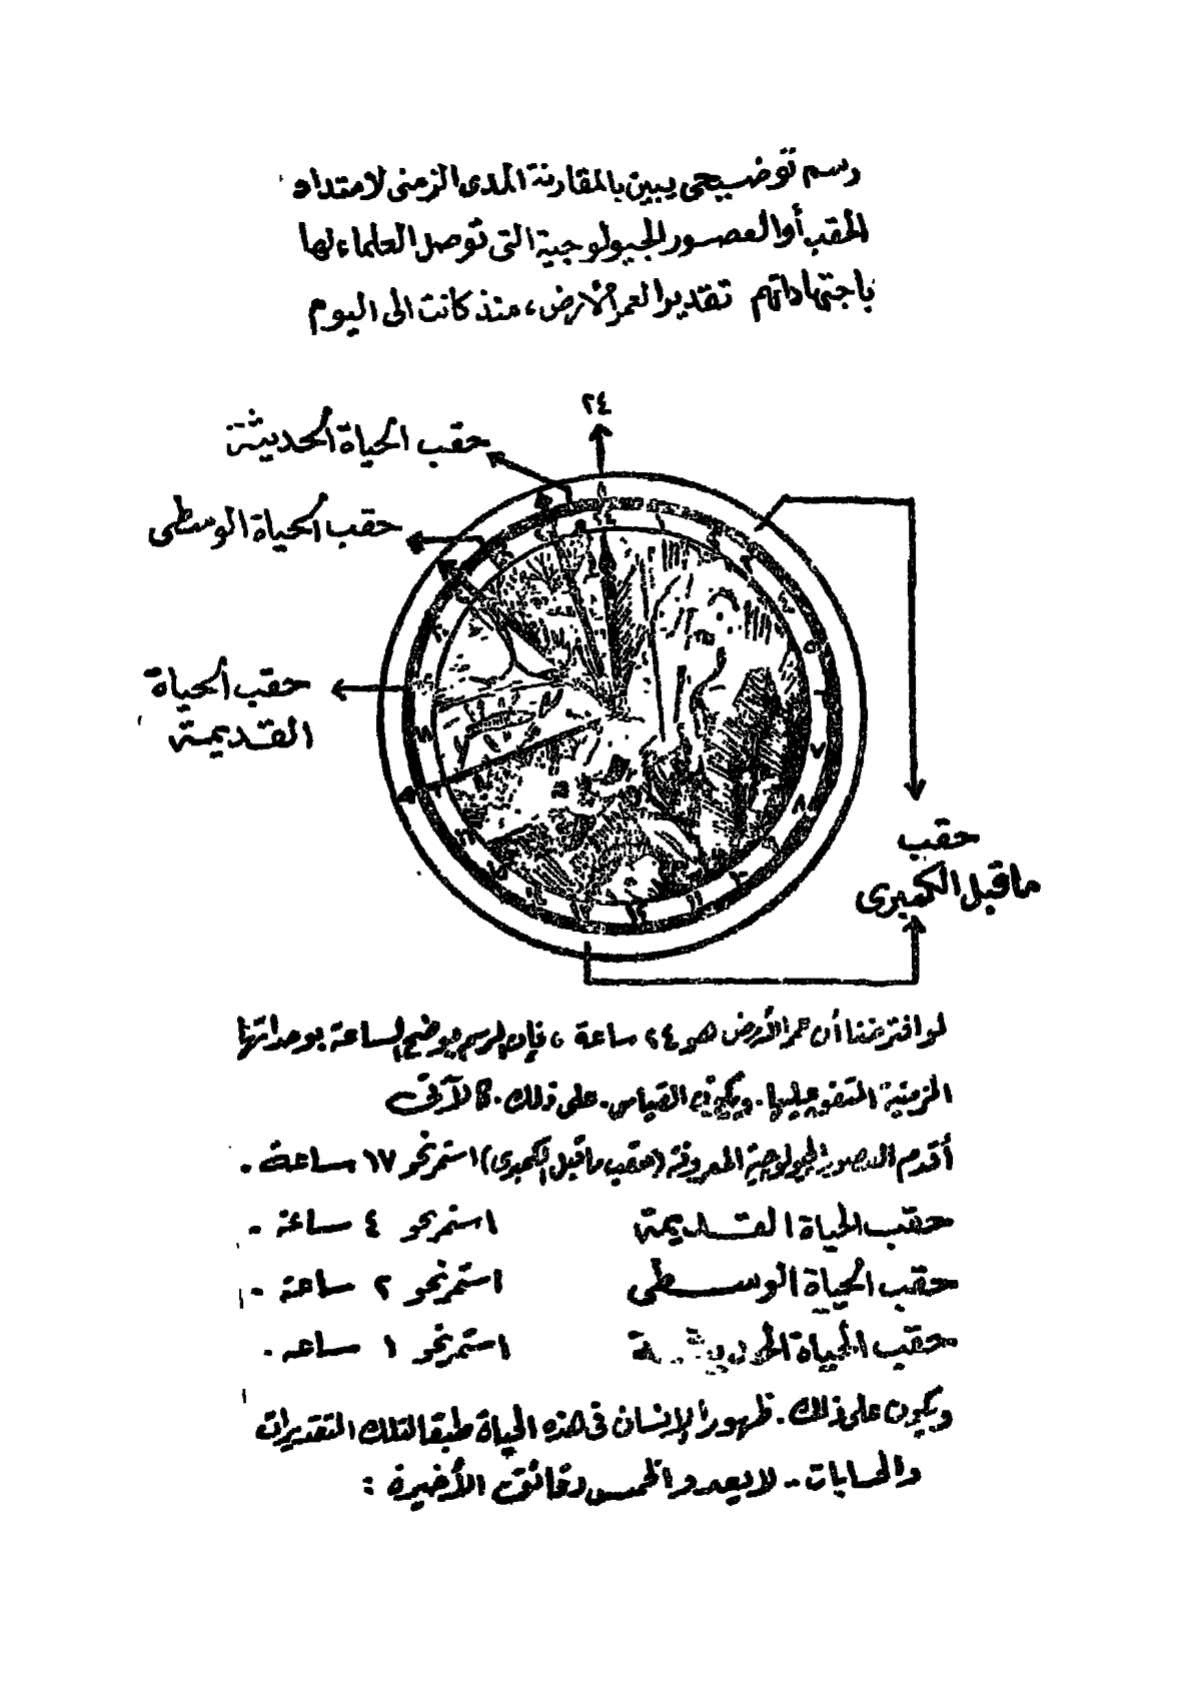 رسم توضيحى يبين بالمقارنة المدى الزمنى لامتداد
الحقب أو العصور الجيولوجية التى توصل العلماء لها
باجتهاداتهم تقديرا لعمر الأرض، منذ كانت الى اليوم
٢٤
حقب الحياة الحديثة
حقب الحياة الوسطى
حقب الحياة
القديمة
حقب
ماقبل الكمبرى
لو افترضنا أن عمر الأرض هو ٢٤ ساعة، فإن الرسم يوضح الساعة بوحداتها
الزمنية المتفق عليها. ويكون القياس. على ذلك. كالآتى
أقدم العصور الجيولوجية المعروفة (حقب ماقبل الكمبرى) استمر نحو ١٧ ساعة.
حقب الحياة القديمة استمر نحو ٤ ساعة.
حقب الحياة الوسطى استمر نحو ٢ ساعة.
حقب الحياة الحديثة استمر نحو ١ ساعه.
ويكون على ذلك. ظهور الإنسان فى هذه الحياة طبقا لتلك التقديرات
والحسابات.. لا يعدو الخمس دقائق الأخيرة: